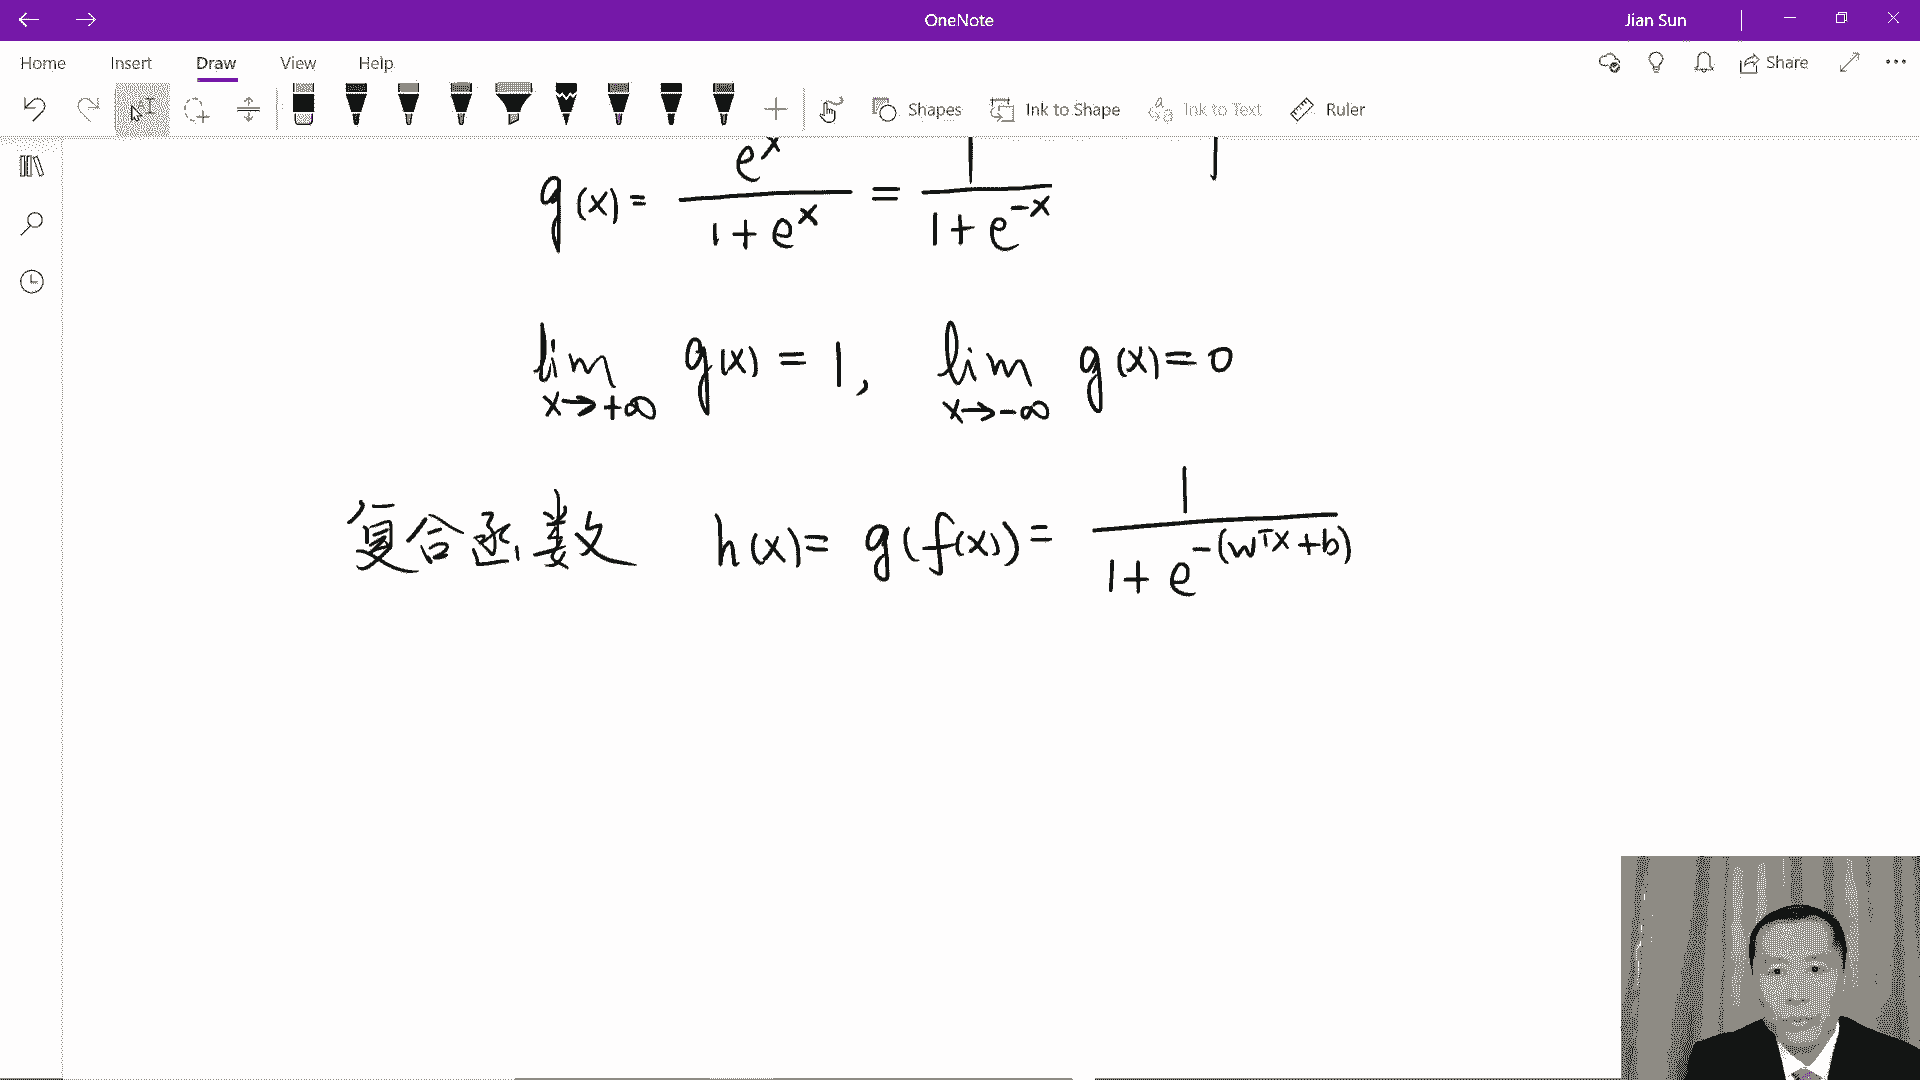 OneNote
Jian Sun
Home Insert Draw View Help
Share
Shapes Ink to Shape Ink to Text Ruler
g(x) = e^x / (1 + e^x) = 1 / (1 + e^-x)
lim x→+∞ g(x) = 1, lim x→-∞ g(x) = 0
复合函数 h(x) = g(f(x)) = 1 / (1 + e^-(w^T x + b))